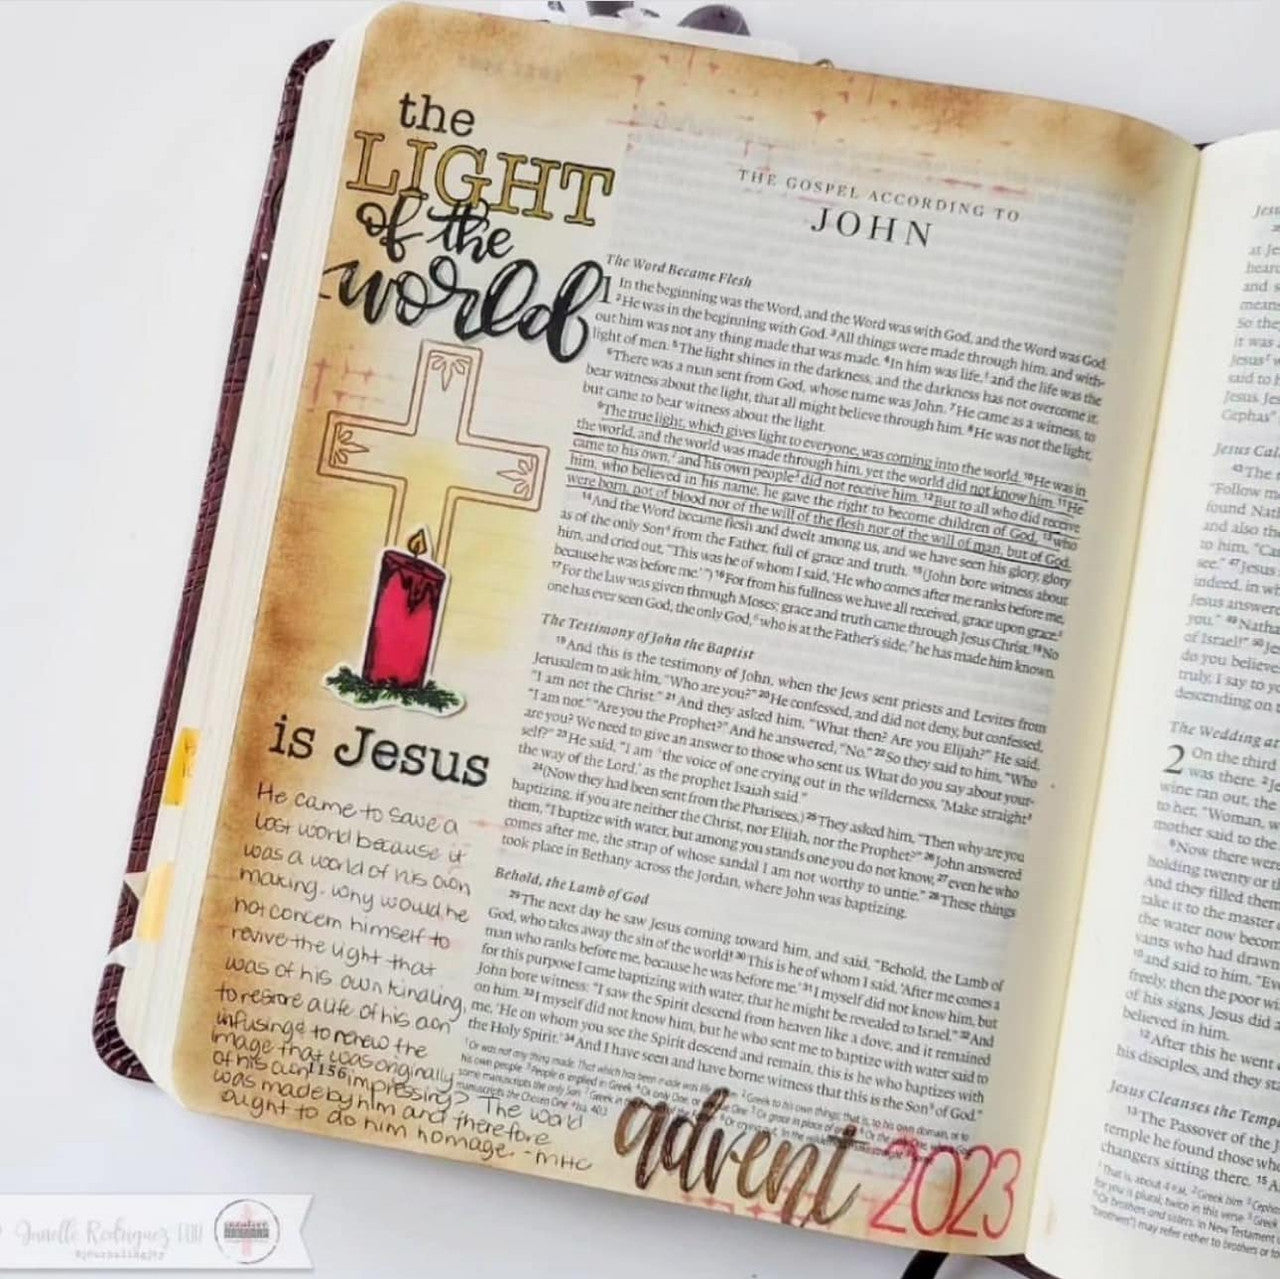 the
LIGHT
of the
world
is Jesus
He came to save a
lost world because it
was a world of his own
making. Why would he
not concern himself to
revive the light that
was of his own kindling,
to restore a life of his own
infusing & to renew the
image that was originally
of his own impressing? The world
was made by him and therefore
ought to do him homage. -MHC
1156
THE GOSPEL ACCORDING TO
JOHN
The Word Became Flesh
1 In the beginning was the Word, and the Word was with God, and the Word was God.
2He was in the beginning with God. 3All things were made through him, and with-
out him was not any thing made that was made. 4In him was life,1 and the life was the
light of men. 5The light shines in the darkness, and the darkness has not overcome it.
6There was a man sent from God, whose name was John. 7He came as a witness, to
bear witness about the light, that all might believe through him. 8He was not the light,
but came to bear witness about the light.
9The true light, which gives light to everyone, was coming into the world. 10He was in
the world, and the world was made through him, yet the world did not know him. 11He
came to his own,2 and his own people3 did not receive him. 12But to all who did receive
him, who believed in his name, he gave the right to become children of God, 13who
were born, not of blood nor of the will of the flesh nor of the will of man, but of God.
14And the Word became flesh and dwelt among us, and we have seen his glory, glory
as of the only Son4 from the Father, full of grace and truth. 15(John bore witness about
him, and cried out, "This was he of whom I said, 'He who comes after me ranks before me,
because he was before me.'") 16For from his fullness we have all received, grace upon grace.5
17For the law was given through Moses; grace and truth came through Jesus Christ. 18No
one has ever seen God; the only God,6 who is at the Father's side,7 he has made him known.
The Testimony of John the Baptist
19And this is the testimony of John, when the Jews sent priests and Levites from
Jerusalem to ask him, "Who are you?" 20He confessed, and did not deny, but confessed,
"I am not the Christ." 21And they asked him, "What then? Are you Elijah?" He said,
"I am not." "Are you the Prophet?" And he answered, "No." 22So they said to him, "Who
are you? We need to give an answer to those who sent us. What do you say about your-
self?" 23He said, "I am 'the voice of one crying out in the wilderness, 'Make straight8
the way of the Lord,' as the prophet Isaiah said."
24(Now they had been sent from the Pharisees.) 25They asked him, "Then why are you
baptizing, if you are neither the Christ, nor Elijah, nor the Prophet?" 26John answered
them, "I baptize with water, but among you stands one you do not know, 27even he who
comes after me, the strap of whose sandal I am not worthy to untie." 28These things
took place in Bethany across the Jordan, where John was baptizing.
Behold, the Lamb of God
29The next day he saw Jesus coming toward him, and said, "Behold, the Lamb of
God, who takes away the sin of the world! 30This is he of whom I said, 'After me comes a
man who ranks before me, because he was before me.' 31I myself did not know him, but
for this purpose I came baptizing with water, that he might be revealed to Israel." 32And
John bore witness: "I saw the Spirit descend from heaven like a dove, and it remained
on him. 33I myself did not know him, but he who sent me to baptize with water said to
me, 'He on whom you see the Spirit descend and remain, this is he who baptizes with
the Holy Spirit.' 34And I have seen and have borne witness that this is the Son9 of God."
advent 2023
at Je
hear
and s
mean
So the
it was
Jesus
said to
Jesus. Jes
Cephas"
Jesus Cal
43The
"Follow m
found Nat
and also th
to him, "Ca
see." 47Jesus
indeed, in w
Jesus answer
you." 49Natha
of Israel!" 50Je
do you believe
truly, I say to y
descending on
The Wedding at
2 On the third
was there. 2Je
wine ran out, the
to her, "Woman, w
mother said to the
6Now there were
holding twenty or th
And they filled them
take it to the master
the water now becom
vants who had drawn
10and said to him, "Eve
freely, then the poor wi
of his signs, Jesus did a
believed in him.
12After this he went
his disciples, and they sta
Jesus Cleanses the Temp
13The Passover of the J
temple he found those wh
changers sitting there. 15
Janelle Rodriguez FOR